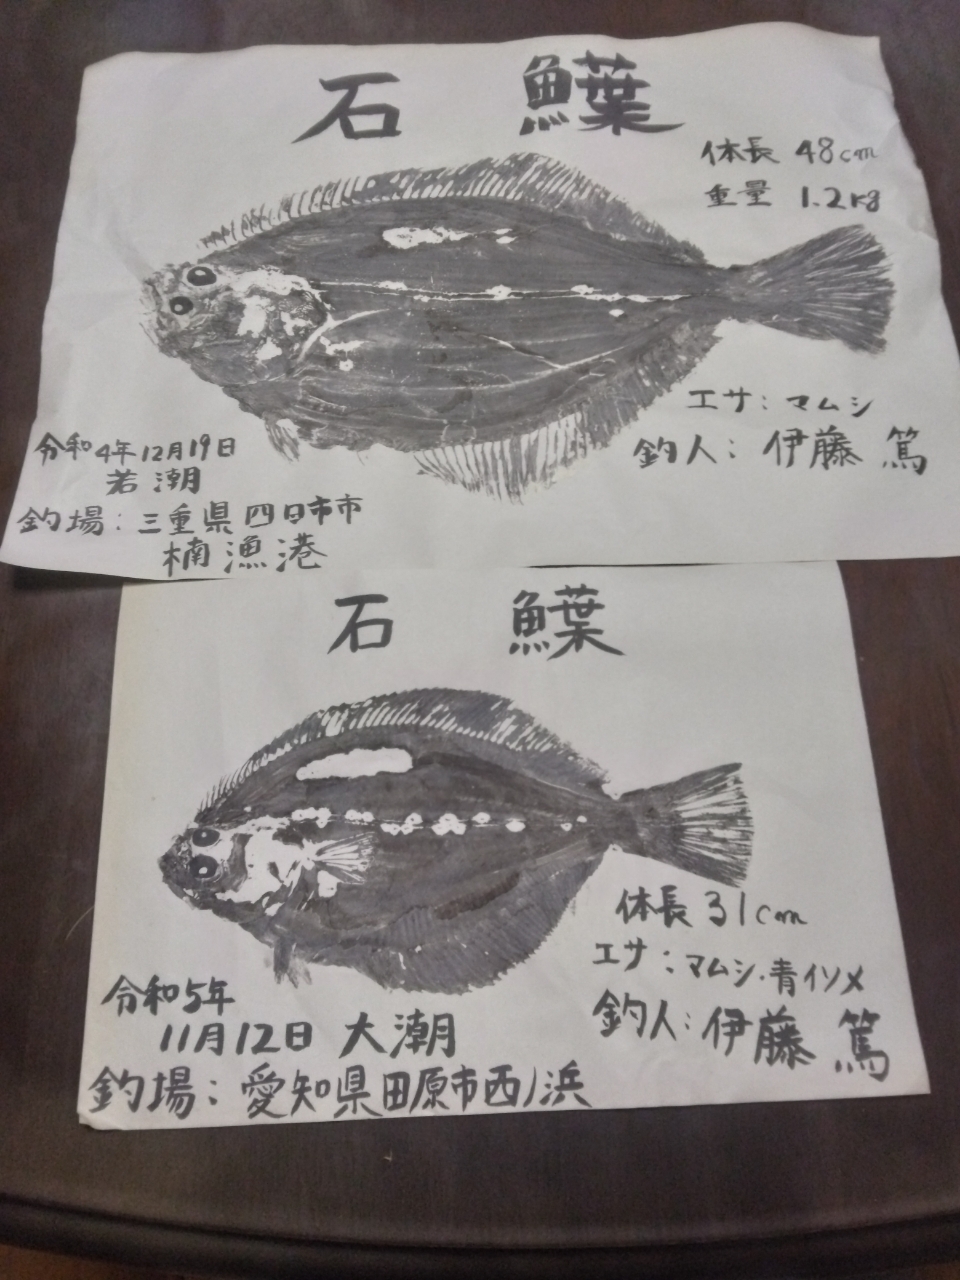 石鰈
体長 48cm
重量 1.2kg
エサ：マムシ
釣人：伊藤 篤
令和4年12月19日
若潮
釣場：三重県四日市市
楠漁港
石鰈
体長31cm
エサ：マムシ・青イソメ
釣人：伊藤 篤
令和5年
11月12日 大潮
釣場：愛知県田原市西ノ浜